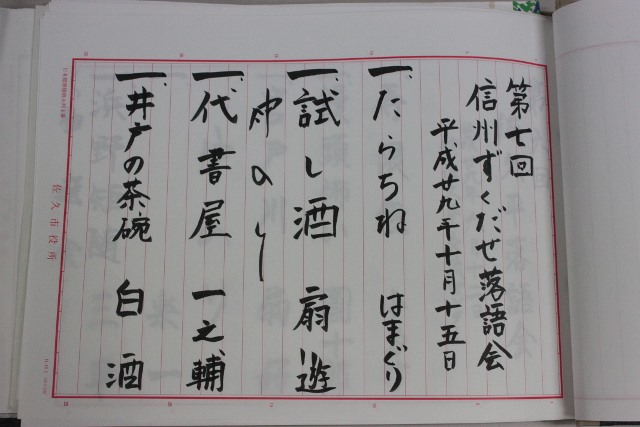 第七回
信州ずくだせ落語会
平成廿九年十月十五日
一、たらちね はまぐり
一、試し酒 扇遊
仲入り
一、代書屋 一之輔
一、井戸の茶碗 白酒
佐久市役所